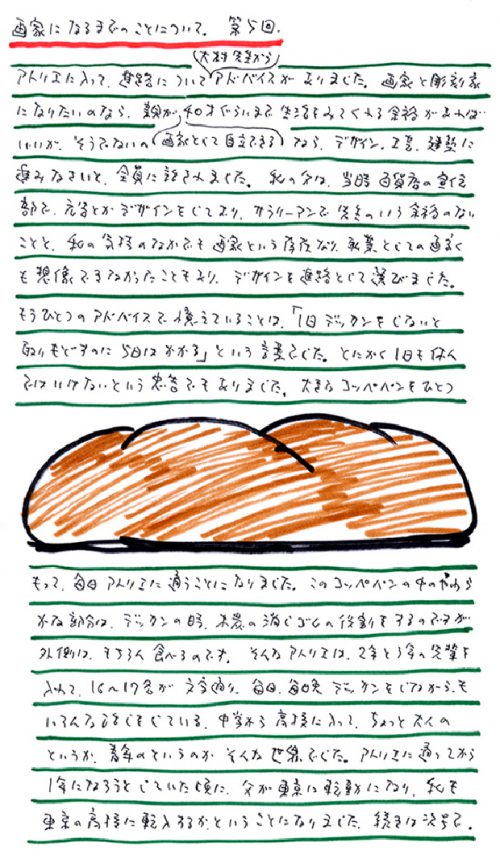 画家になるまでのことについて。 第5回.
大村先生から
アトリエに入って、進路についてアドバイスがありました。画家と彫刻家
になりたいのなら、親が40才ぐらいまで生活をみてくれる余裕があれば
いいが、そうでないの(画家として自立できる)なら、デザイン、工芸、建築に
進みなさいと、全員に話されました。私の父は、当時百貨店の宣伝
部で、広告とかデザインをしており、サラリーマンで先生のいう余裕のない
ことと、私の気持のなかでも画家という存在なり、職業としての画家
も想像できなかったこともあり、デザインを進路として選びました。
もうひとつのアドバイスで憶えていることは、「1日デッサンをしないと
取りもどすのに5日はかかる」という言葉でした。とにかく1日も休ん
ではいけないという忠告でもありました。大きなコッペパンをひとつ
もって、毎日アトリエに通うことになりました。このコッペパンの中のやわら
かな部分は、デッサンの時、木炭の消しゴムの役割をするのですが
外側は、もちろん食べるのです。そんなアトリエは、2年と3年の先輩を
入れて、16〜17名が文字通り、毎日、毎晩デッサンをしながら、も
いろんな話をしている。中学から高校に入って、ちょっと大人の
というか、青年のというのか、そんな世界でした。アトリエに通ってから
1年になろうとしていた頃に、父が東京に転勤になり、私も
東京の高校に転入するか、ということになりました。続きは次号で。